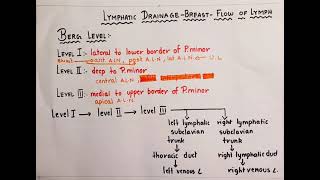 LYMPHATIC DRAINAGE-BREAST-FLOW OF LYMPH
BERG LEVEL:-
LEVEL I:- lateral to lower border of P.minor
ant A.L.N, post A.L.N, lat A.L.N ← U.L
LEVEL II:- deep to P.minor
central A.L.N
LEVEL III:- medial to upper border of P.minor
apical A.L.N
Level I → level II → level III
left lymphatic right lymphatic
subclavian subclavian
trunk trunk
thoracic duct right lymphatic duct
left venous ∠. right venous ∠.